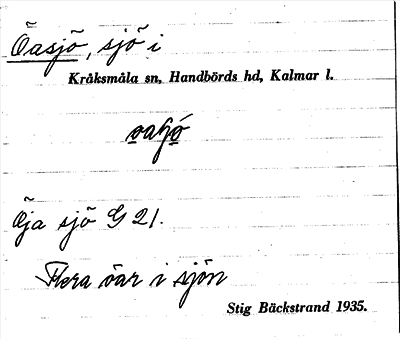 Öasjö, sjö i
Kråksmåla sn, Handbörds hd, Kalmar l.
Öja sjö G 21.
Flera öar i sjön
Stig Bäckstrand 1935.